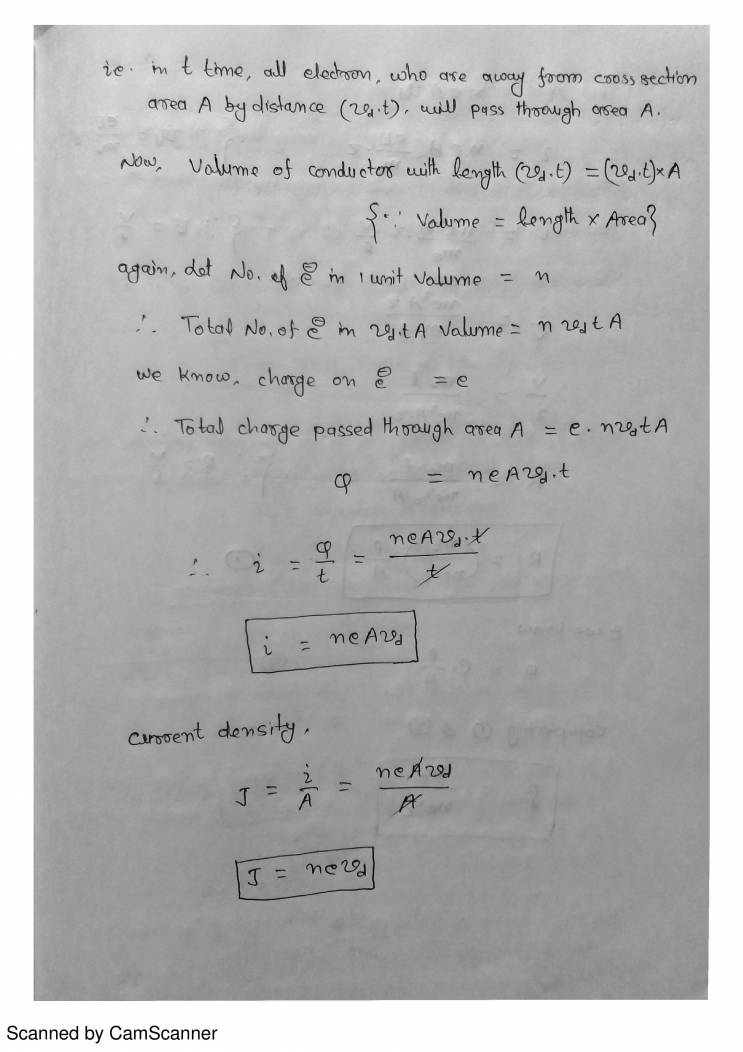 ie. in t time, all electron, who are away from cross section
area A by distance (vd.t), will pass through area A.
Now, Volume of conductor with length (vd.t) = (vd.t)×A
{∵ Volume = length × Area}
again, let No. of e⊖ in 1 unit Volume = n
∴ Total No. of e⊖ in vd.tA Volume = n vd t A
we know, charge on e⊖ = e
∴ Total charge passed through area A = e. nvdtA
q = neAvd.t
∴ i = q/t = neAvd.t/t
i = neAvd
Current density,
J = i/A = neAvd/A
J = nevd
Scanned by CamScanner